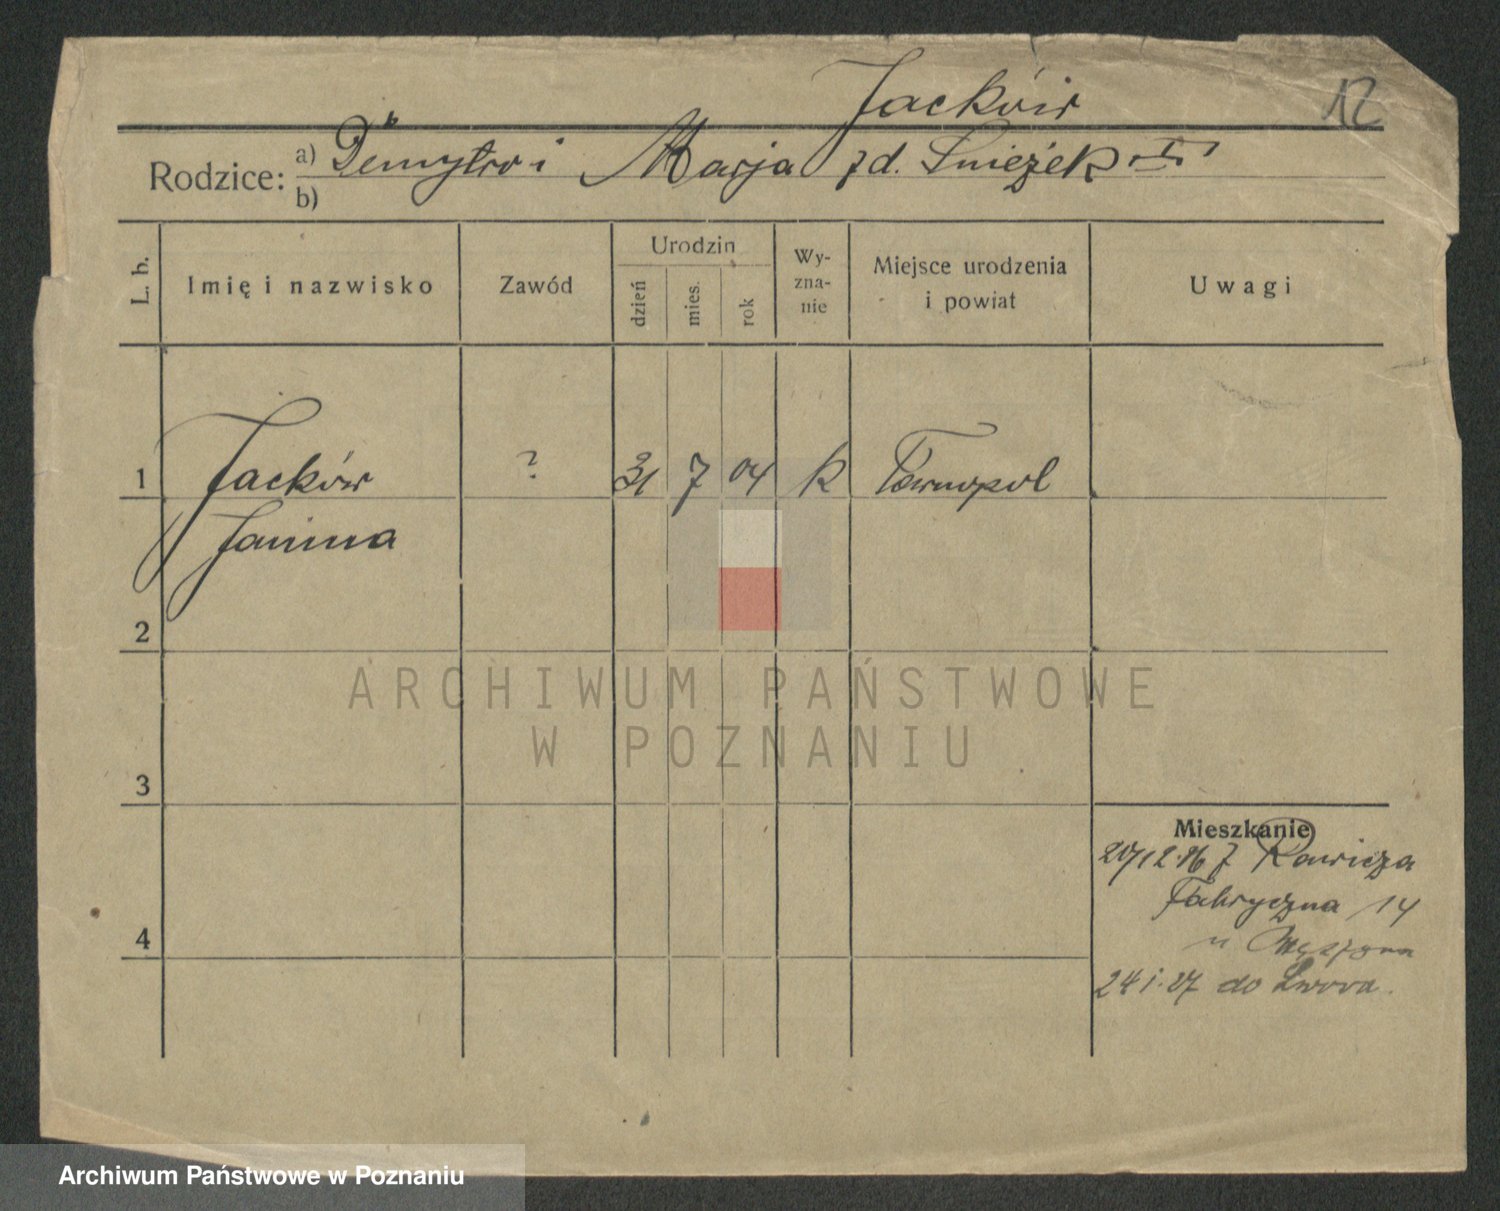 Jacków 12
Rodzice: a) Demytro i Marja zd. Snieżek
b)
L. b. Imię i nazwisko Zawód Urodzin dzień mies. rok Wy-zna-nie Miejsce urodzenia i powiat Uwagi
1 Jacków ? 31 7 04 k Tarnopol
Janina
2
3
4
Mieszkanie
20/12.26 z Rawicza
Fabryczna 14
u
24 1. 27 do Lwowa.
ARCHIWUM PAŃSTWOWE
W POZNANIU
Archiwum Państwowe w Poznaniu